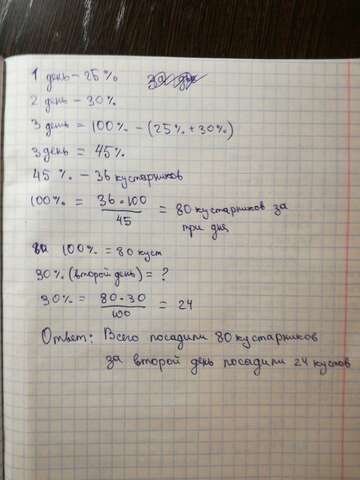 1 день – 25%
2 день – 30%
3 день = 100% – (25% + 30%)
3 день = 45%
45 % – 36 кустарников
100% = 36 • 100 / 45 = 80 кустарников за
три дня
100% = 80 куст
30% (второй день) = ?
30% = 80 • 30 / 100 = 24
Ответ: Всего посадили 80 кустарников
за второй день посадили 24 кустов